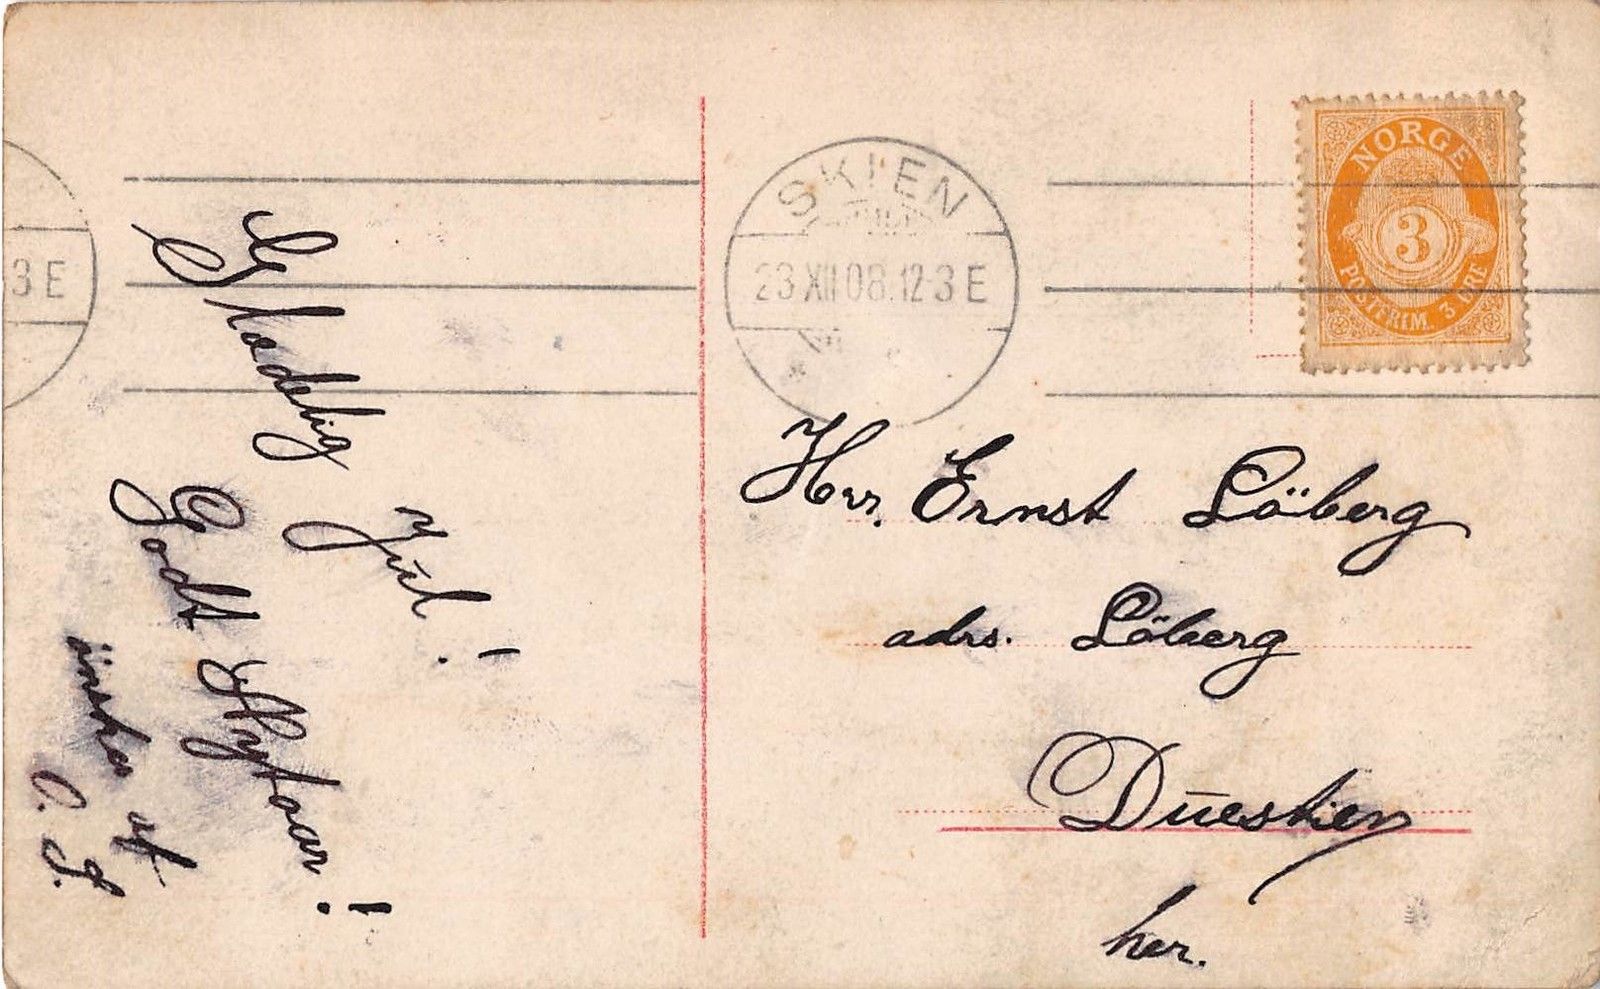 Glædelig
Jul!
Godt Nytaar!
önskes af
O. S.
SKIEN
23 XII 08.12-3 E
3 E
NORGE
3
POSTFRIM. 3 ØRE
Hrr. Ernst Löberg
adrs. Löberg
Duestien
her.